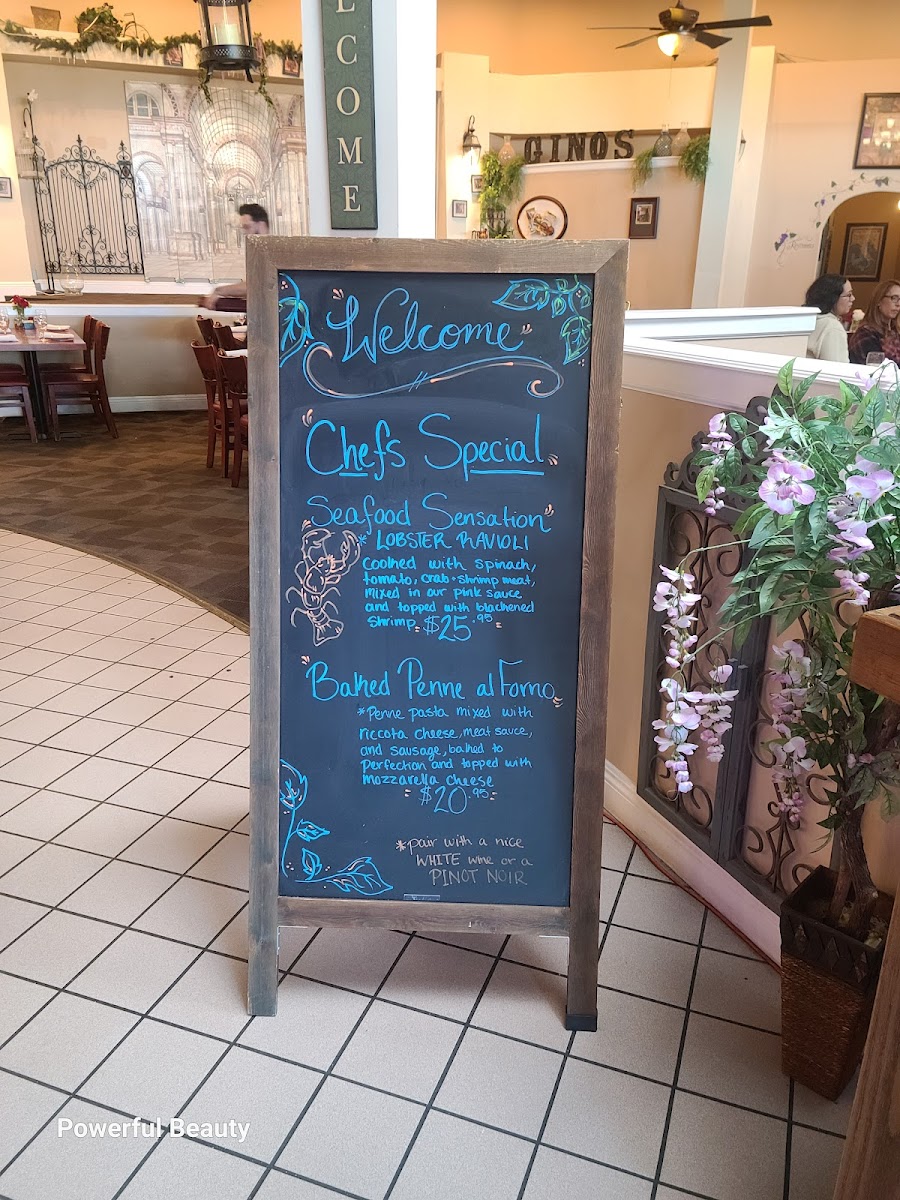 LCOME
GINOS
Welcome
Chefs Special
Seafood Sensation
* LOBSTER RAVIOLI
cooked with spinach,
tomato, crab + shrimp meat,
mixed in our pink sauce
and topped with blackened
shrimp. $25.95
Baked Penne al Forno
*Penne pasta mixed with
riccota cheese, meat sauce,
and sausage, baked to
perfection and topped with
mozzarella cheese
$20.95
*pair with a nice
WHITE wine or a
PINOT NOIR
Powerful Beauty